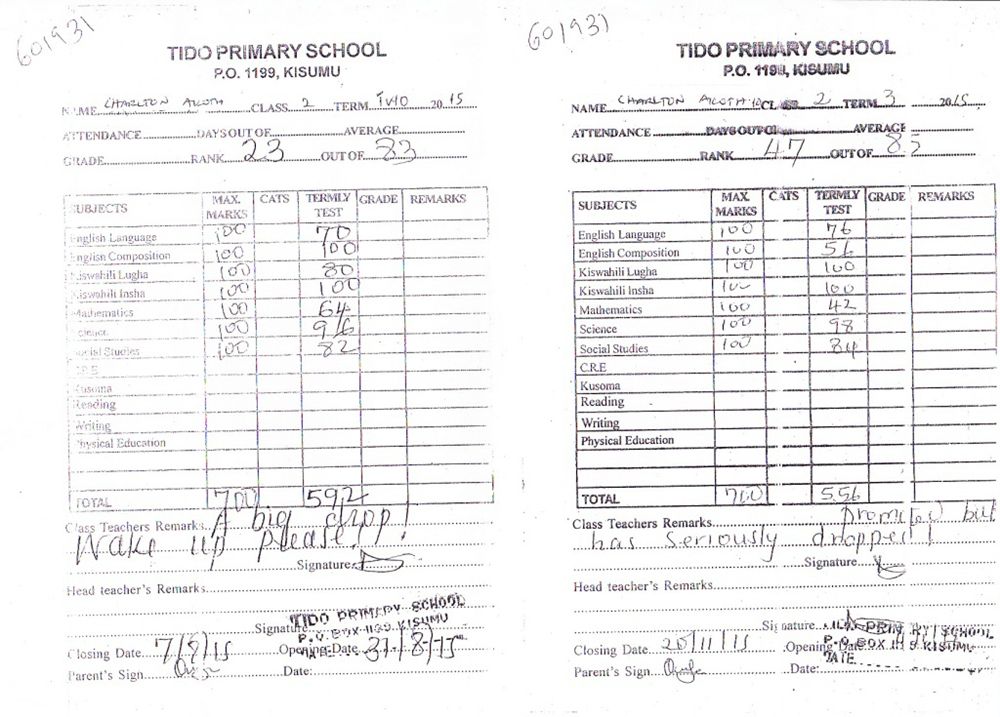 601931
TIDO PRIMARY SCHOOL
P.O. 1199, KISUMU
NAME CHARLTON CLASS 2 TERM TWO 2015
ATTENDANCE DAYS OUT OF AVERAGE
GRADE RANK 23 OUT OF 83
SUBJECTS MAX. MARKS CATS TERMLY TEST GRADE REMARKS
English Language 100 70
English Composition 100 100
Kiswahili Lugha 100 80
Kiswahili Insha 100 100
Mathematics 100 64
Science 100 96
Social Studies 100 82
C.R.E
Kusoma
Reading
Writing
Physical Education
TOTAL 700 592
Class Teachers Remarks A big drop!
Wake up please!
Signature
Head teacher's Remarks
Signature
TIDO PRIMARY SCHOOL
P.O. BOX 1199 KISUMU
Closing Date 7/8/15 Opening Date 31/8/15
Parent's Sign Date:
601931
TIDO PRIMARY SCHOOL
P.O. 1199, KISUMU
NAME CHARLTON CLASS 2 TERM 3 2015
ATTENDANCE DAYS OUT OF AVERAGE
GRADE RANK 47 OUT OF
SUBJECTS MAX. MARKS CATS TERMLY TEST GRADE REMARKS
English Language 100 76
English Composition 100 56
Kiswahili Lugha 100 100
Kiswahili Insha 100 100
Mathematics 100 42
Science 100 98
Social Studies 100 84
C.R.E
Kusoma
Reading
Writing
Physical Education
TOTAL 700 556
Class Teachers Remarks Promoted but
has seriously dropped!
Signature
Head teacher's Remarks
Signature
TIDO PRIMARY SCHOOL
P.O. BOX 1199 KISUMU
DATE
Closing Date 20/11/15 Opening Date
Parent's Sign Date: